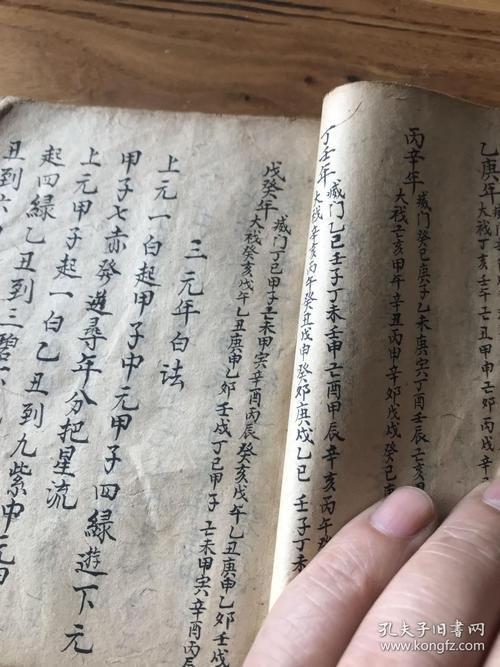 乙庚年
丙辛年 滅门癸巳庚子乙未庚寅丁酉壬辰己亥甲
大 己亥甲午辛丑丙申辛卯戊戌癸巳
丁壬年 滅门乙巳壬子丁未壬申己酉甲辰辛亥丙午
大 辛亥丙午癸丑戊申癸卯庚戌乙巳 壬子丁未
戊癸年 滅门丁巳甲子己未甲寅辛酉丙辰癸亥戊午乙丑庚申乙卯壬戌
大 癸亥戊午乙丑庚申乙卯壬戌丁巳甲子 己未甲寅辛酉丙
三元年白法
上元一白起甲子中元甲子四綠遊下元
甲子七赤發逆尋年分把星流
上元甲子起一白乙丑到九紫中元甲
起四綠乙丑到三碧六
丑到六
孔夫子旧书网
www.kongfz.com